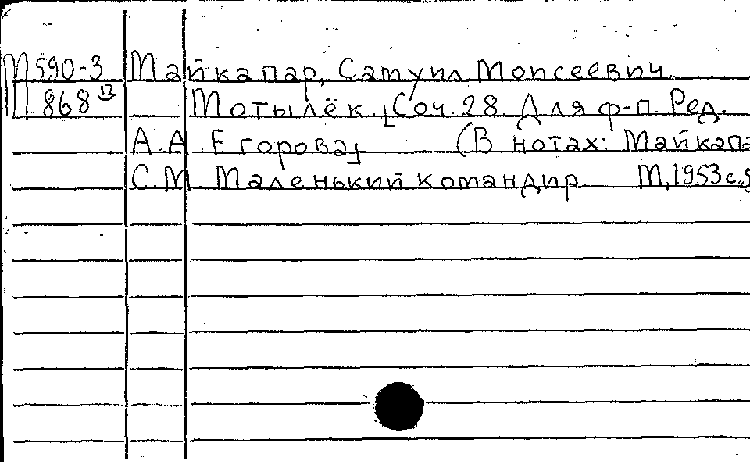 М590-3 Майкапар, Самуил Моисеевич
П 868 Мотылёк. [Соч. 28. Для ф-п. Ред.
А.А. Егорова] (В нотах: Майкапа
С.М. Маленький командир М, 1953 с.